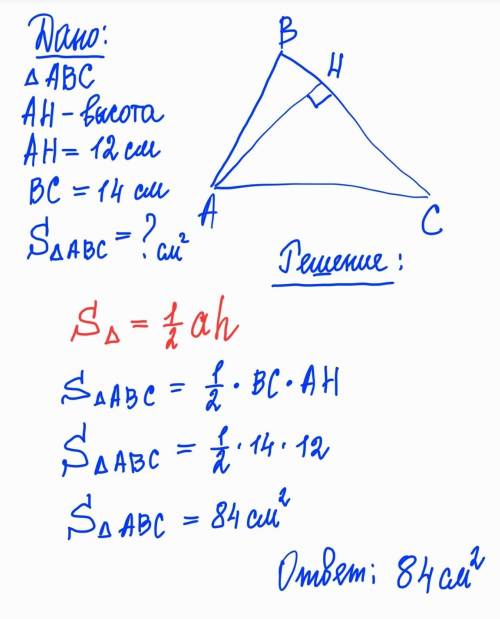 Дано:
△ABC
AH - высота
AH = 12 см
BC = 14 см
S△ABC = ? см²
B
H
A
C
Решение:
S△ = 1/2 ah
S△ABC = 1/2 · BC · AH
S△ABC = 1/2 · 14 · 12
S△ABC = 84 см²
Ответ: 84 см²